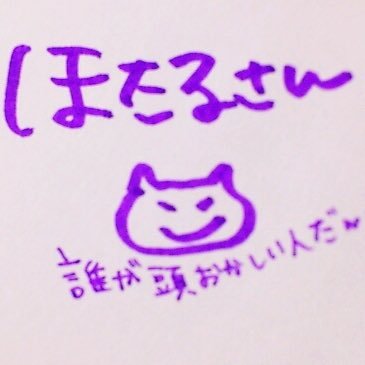 ほたるさん
誰が頭おかしい人だw